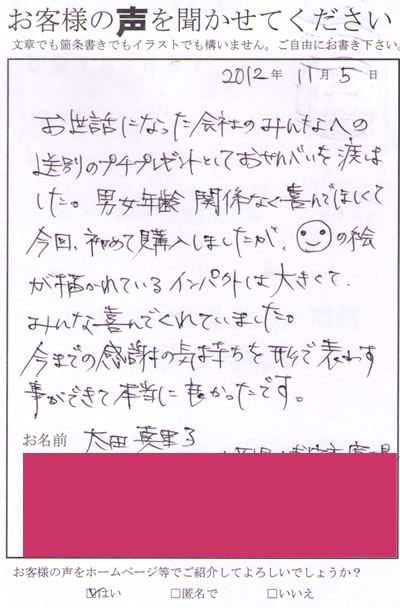 お客様の声を聞かせてください
文章でも箇条書きでもイラストでも構いません。ご自由にお書き下さい。
2012年 11月 5日
お世話になった会社のみんなへの
送別のプチプレゼントとしておせんべいを渡しま
した。男女年齢 関係なく喜んでほしくて
今回、初めて購入しましたが、の絵
が描かれているインパクトは大きくて、
みんな喜んでくれていました。
今までの感謝の気持ちを形で表わす
事ができて本当に良かったです。
お名前 太田真里子
お客様の声をホームページ等でご紹介してよろしいでしょうか？
☑はい □匿名で □いいえ